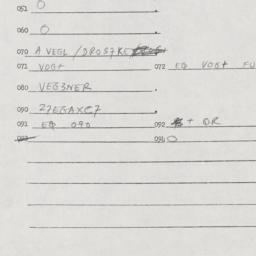 051 O
060 O
070 A VEGL / DROS7KE
071 VOG+ 072 EQ VOG+ FU
080 VEG3NER
090 27EGAXC7
091 EQ 090 092 + OR
093 094 O